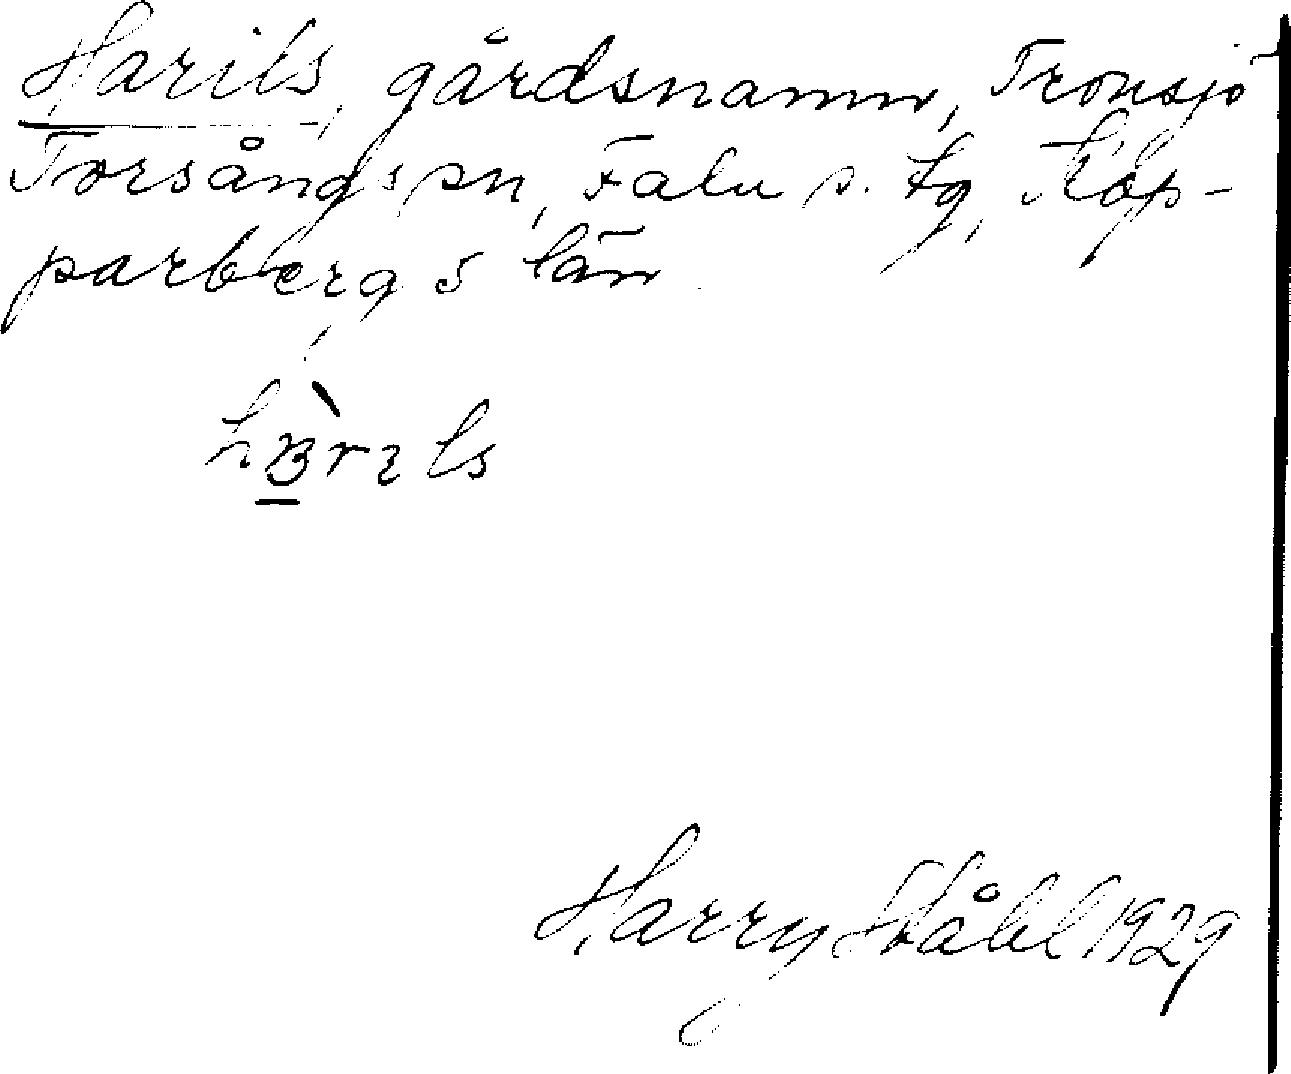 Harils, gårdsnamn, Tronsjö
Torsångs sn, Falu s. tg, Kop-
parbergs län
Harry Ståhl 1929